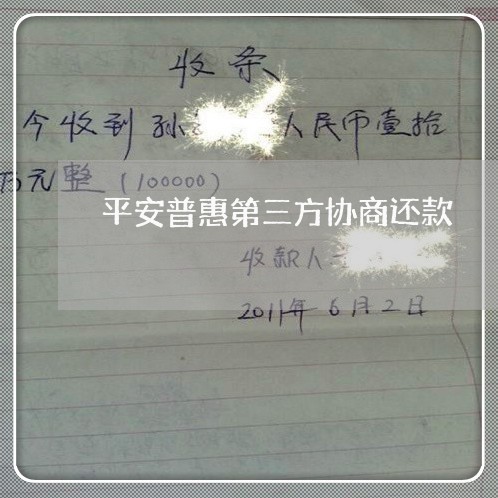 收条
今收到孙 人民币壹拾
万元整(100000)
平安普惠第三方协商还款
收款人
2011年6月2日